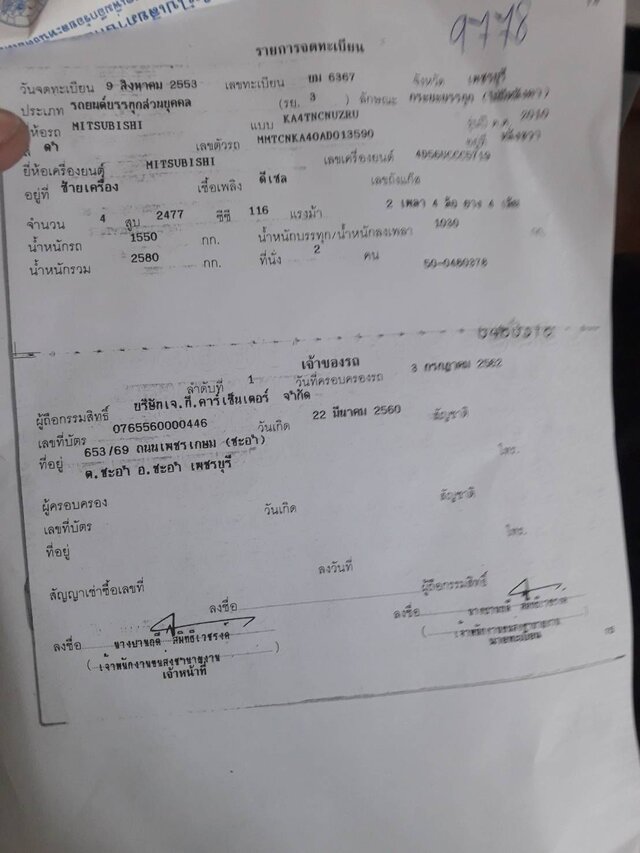 9778
รายการจดทะเบียน
วันจดทะเบียน 9 สิงหาคม 2553 เลขทะเบียน ยม 6367 จังหวัด เพชรบุรี
ประเภท รถยนต์บรรทุกส่วนบุคคล (รย. 3 ) ลักษณะ กระบะบรรทุก (ไม่มีหลังคา)
MITSUBISHI แบบ KA4TNCNUZRU ค.ศ. 2010
ดำ เลขตัวรถ MMTCNKA40AD013590 อยู่ที่
ยี่ห้อเครื่องยนต์ MITSUBISHI เลขเครื่องยนต์
อยู่ที่ ซ้ายเครื่อง เชื้อเพลิง ดีเซล เลขถังแก๊ส
จำนวน 4 สูบ 2477 ซีซี 116 แรงม้า 2 เพลา 4 ล้อ ยาง 4 เส้น
น้ำหนักรถ 1550 กก. น้ำหนักบรรทุก/น้ำหนักลงเพลา 1030 กก.
น้ำหนักรวม 2580 กก. ที่นั่ง 2 คน 50-0460378
เจ้าของรถ
ลำดับที่ 1 วันที่ครอบครองรถ 3 กรกฎาคม 2562
ผู้ถือกรรมสิทธิ์ บริษัทเจ.ที.คาร์เซ็นเตอร์ จำกัด
เลขที่บัตร 0765560000446 วันเกิด 22 มีนาคม 2560 สัญชาติ
ที่อยู่ 653/69 ถนนเพชรเกษม (ชะอำ) โทร.
ต.ชะอำ อ.ชะอำ เพชรบุรี
ผู้ครอบครอง
เลขที่บัตร วันเกิด สัญชาติ
ที่อยู่ โทร.
สัญญาเช่าซื้อเลขที่ ลงวันที่ ผู้ถือกรรมสิทธิ์
ลงชื่อ ลงชื่อ
ลงชื่อ
( เจ้าพนักงานขนส่งชำนาญงาน )
เจ้าหน้าที่
( เจ้าพนักงานขนส่งชำนาญงาน )
นายทะเบียน